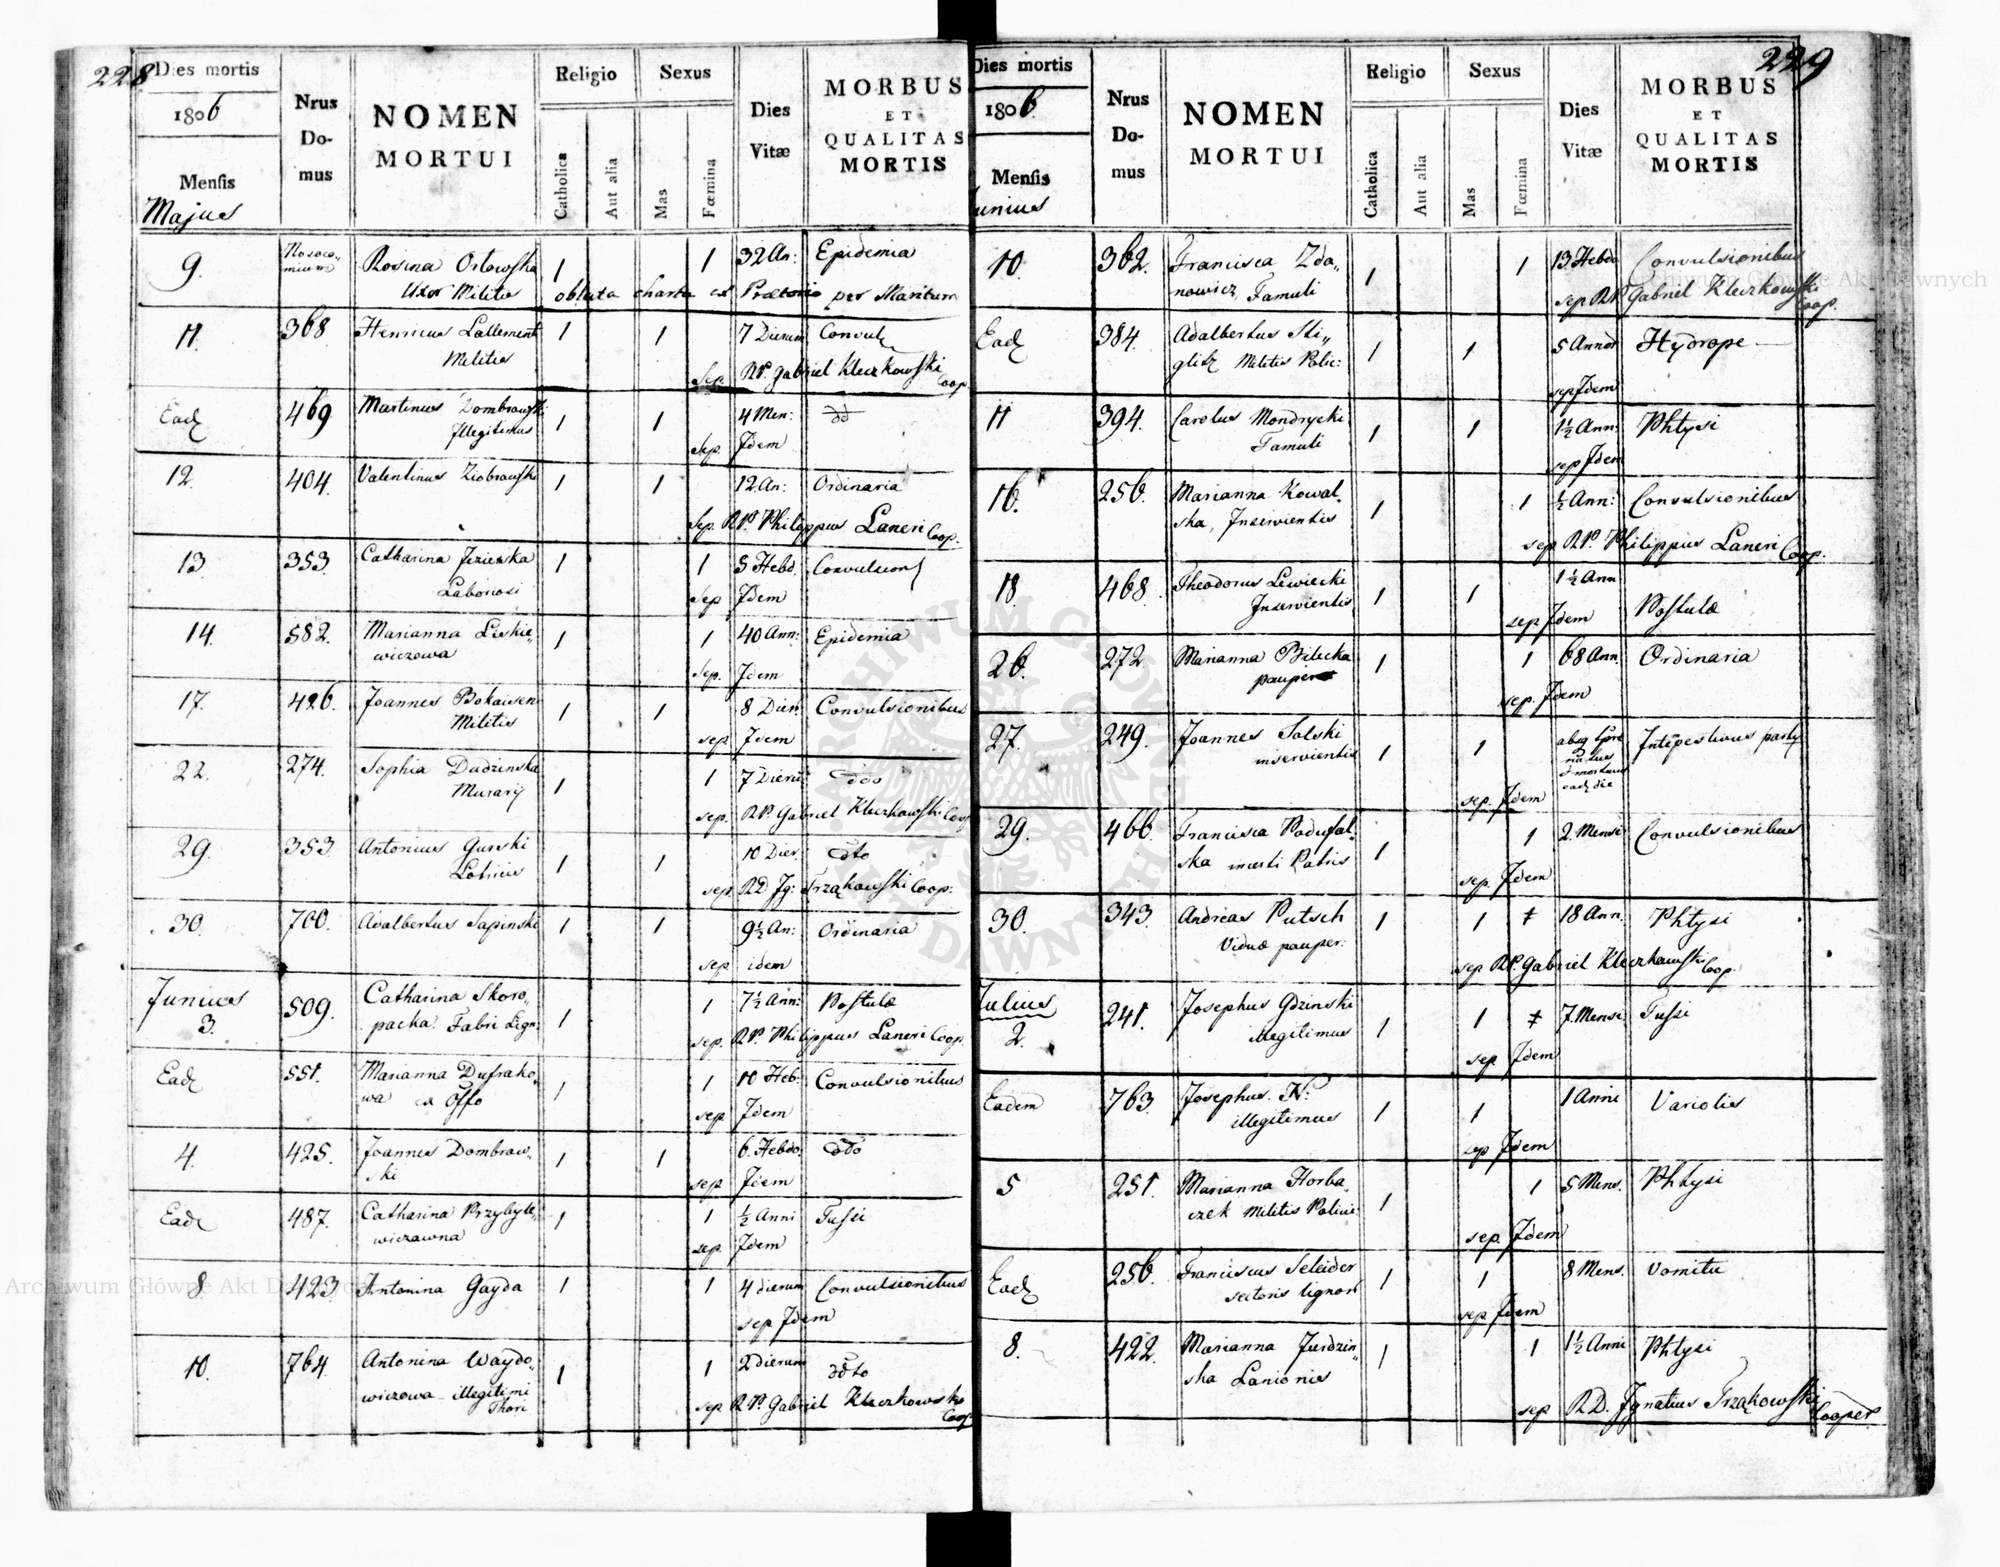 228
Dies mortis
1806
Mensis
Majus
Nrus Domus
NOMEN MORTUI
Religio
Catholica
Aut alia
Sexus
Mas
Fœmina
Dies Vitæ
MORBUS ET QUALITAS MORTIS
9. Nosoco= mium Rosina Orlowska 1 1 32 An: Epidemia
Uxor Militis oblata charta ex Prætorio per Maritum
11. 368. Henricus Lallement 1 1 7 Dierum Convul
Militis Sep. RP. Gabriel Kleczkowski Coop
Ead 469 Martinus Dombrowski 1 1 4 Men: ddo
Illegitimus Sep. Idem
12. 404. Valentinus Ziobrowski 1 1 12 An: Ordinaria
Sep. RP. Philippus Laneri Coop.
13. 353. Catharina Jezierska 1 1 5 Hebd. Convulsion
Laboriosi sep Idem
14. 582. Marianna Liskie= 1 1 40 Ann: Epidemia
wiczowa sep. Idem
17. 426. Joannes Bokaisen 1 1 8 Dier: Convulsionibus
Militis sep Idem
22. 274. Sophia Dudzinska 1 1 7 Dieru ddo
Murarij sep. RP. Gabriel Kleczkowski Coop
29. 353 Antonius Gurski 1 1 10 Dier. ddto
sep RD Ig: Trząkowski Coop:
30. 700. Adalbertus Sapinski 1 1 9½ An: Ordinaria
sep idem
Junius
3. 509. Catharina Skoro= 1 1 7½ Ann: Postulæ
packa Fabri Lign. sep. RP. Philippus Laneri Coop.
Ead 551. Marianna Dufrako= 1 1 10 Heb: Convulsionibus
wa ex Offo sep Idem
4. 425. Joannes Dombrow= 1 1 6. Hebdo. ddo
ski sep Idem
Ead 487. Catharina Przybyle= 1 1 ½ Anni Tussi
wiczawna sep. Idem
8. 423. Antonina Gayda 1 1 4 dierum Convulsionibus
sep Idem
10. 764. Antonina Waydo= 1 1 2 dierum ddto
wiczowa illegitimi Thori sep RP. Gabriel Kleczkowski Coop
229
Dies mortis
1806.
Mensis
Junius
Nrus Domus
NOMEN MORTUI
Religio
Catholica
Aut alia
Sexus
Mas
Fœmina
Dies Vitæ
MORBUS ET QUALITAS MORTIS
10. 362. Francisca Zda= 1 1 13 Hebdo Convulsionibus
nowicz, Famuli sep RP Gabriel Kleczkowski Coop.
Ead 384. Adalbertus Sti= 1 1 5 Annor Hydrope
glitz Militis Polic: sep Idem
11 394. Carolus Mondrycki 1 1 1½ Ann: Phtysi
Famuli sep Idem
16. 256. Marianna Kowal= 1 1 ½ Ann: Convulsionibus
ska, Inservientis sep RP. Philippus Laneri Coop.
18. 468. Theodorus Lewiecki 1 1 1½ Ann
Inservientis sep Idem Postulæ
26. 272. Marianna Bilecka 1 1 68 Ann. Ordinaria
pauper sep. Idem
27. 249. Joannes Solski 1 1 Intepestivus
inservientis sep. Idem
29. 466. Francisca Podufal= 1 1 2. Mensi Convulsionibus
ska Patris sep. Idem
30. 343. Andreas Putsch 1 1 18 Ann. Phtysi
Viduæ pauper. sep RP. Gabriel Kleczkowski Coop
Julius
2. 241. Josephus Gdzinski 1 1 7. Mensi. Tussi
illegitimus sep Idem
Eadem 763. Josephus N: 1 1 1 Anni Variolis
illegitimus sep Idem
5 251. Marianna Horba= 1 1 5 Mens. Phtysi
czek Militis Policie sep. Idem
Ead 256. Franciscus Seleider 1 1 8 Mens. Vomitu
sectoris lignor sep Idem
8. 422. Marianna Jurdzin= 1 1 1½ Anni Phtysi
ska Lanionis sep RD. Ignatius Trząkowski Cooper.
ARCHIWUM GŁÓWNE AKT DAWNYCH
Archiwum Główne Akt Dawnych
Archiwum Główne Akt Dawnych